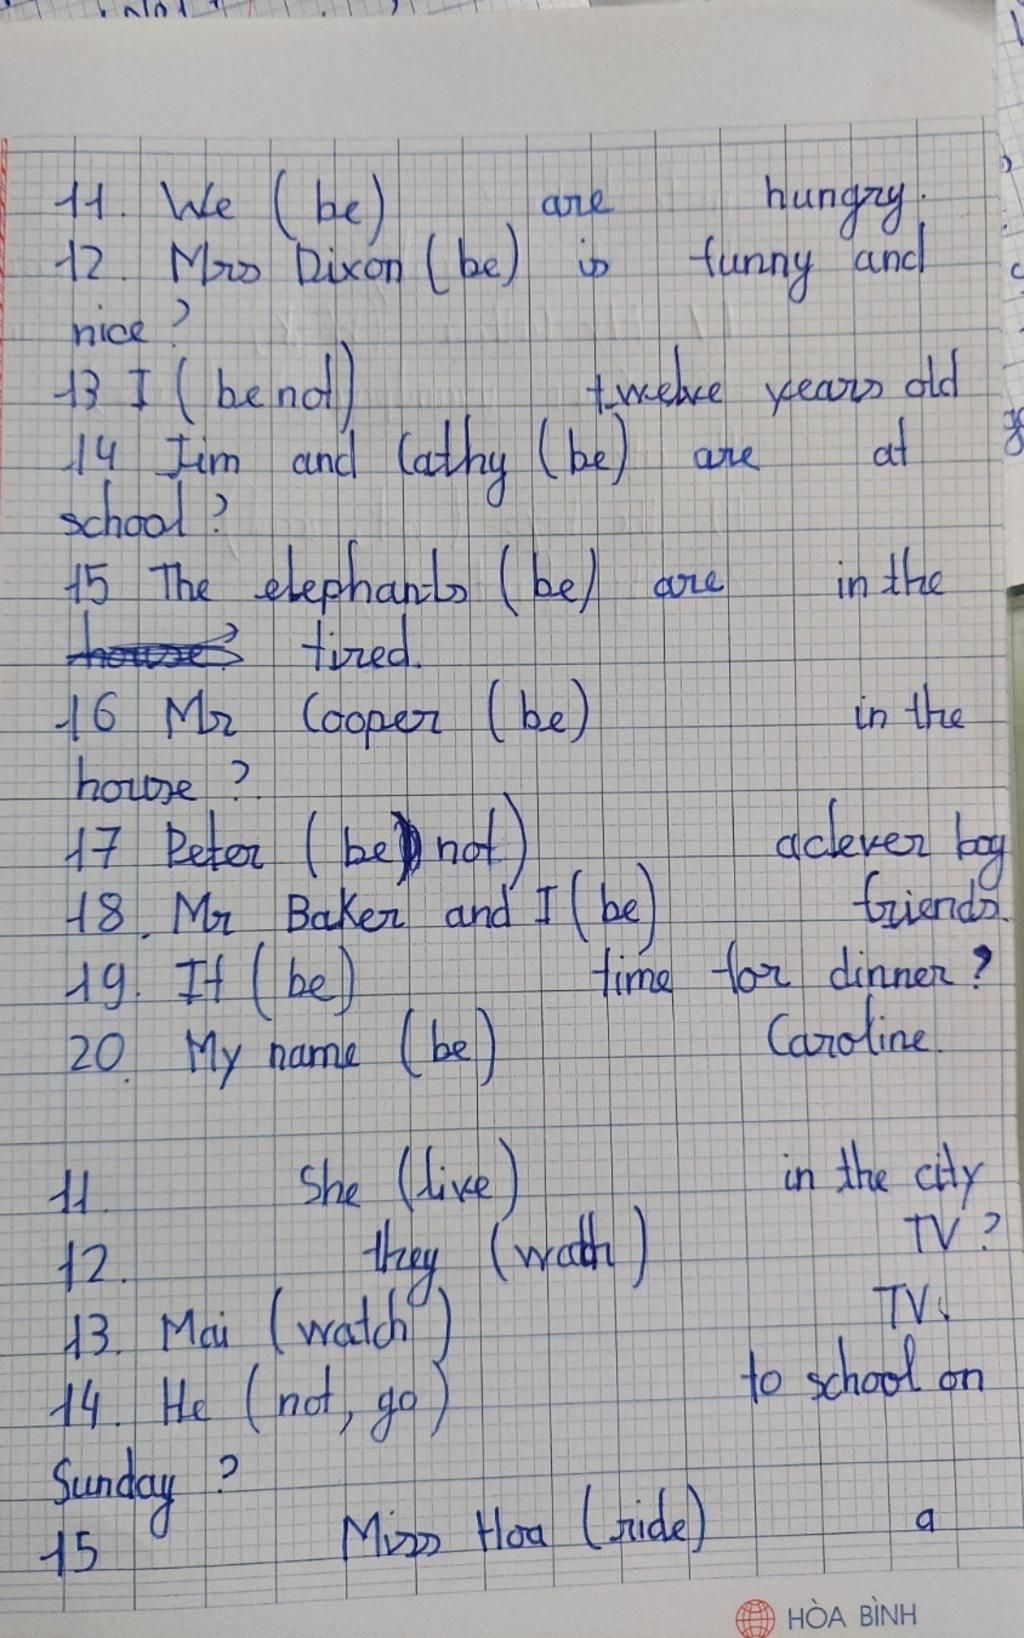 11. We (be) are hungry.
12. Mrs Dixon (be) is funny and
nice?
13 I (be not) twelve years old
14 Jim and Cathy (be) are at
school?
15 The elephants (be) are in the
house? tired.
16 Mr Cooper (be) in the
house?
17 Peter (be not) a clever boy
18. Mr Baker and I (be) friends.
19. It (be) time for dinner?
20. My name (be) Caroline.
11. She (live) in the city
12. they (wath) TV?
13. Mai (watch) TV.
14. He (not, go) to school on
Sunday?
15 Miss Hoa (ride) a
HÒA BÌNH